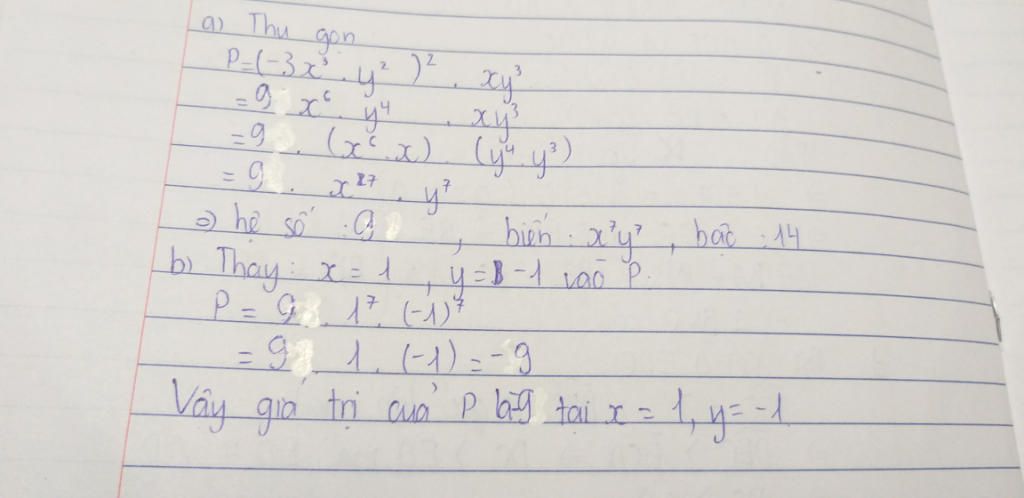 a) Thu gọn
P=(-3x³.y²)².xy³
=9x⁶.y⁴.xy³
=9.(x⁶.x).(y⁴.y³)
=9.x⁷.y⁷
⇒ hệ số: 9, biến: x⁷y⁷, bậc: 14
b) Thay: x = 1, y = -1 vào P.
P = 9.1⁷.(-1)⁷
= 9.1.(-1) = -9
Vậy giá trị của P là -9 tại x = 1, y = -1